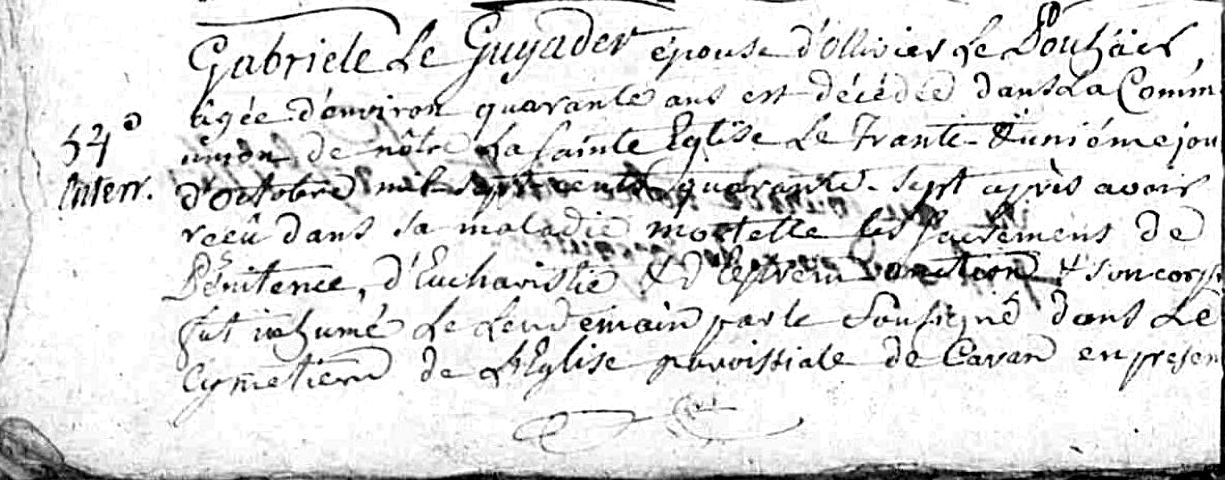 Gabriele Le Guyader épouse d'Ollivier Le Pouhaër
âgée d'environ quarante ans est décédée dans La Comm
54e
union de nôtre La Sainte Eglise Le Trante & uniéme jou
Interr.
d'octobre mil sept cents quarante-sept après avoir
reçû dans sa maladie mortelle les sacremens de
Pénitence, d'Eucharistie & d'Extrem onction & son corps
fut inhumé Le Lendemain par le Soussigné dans Le
Cymetiere de L'Eglise paroissiale de Cavan en presen